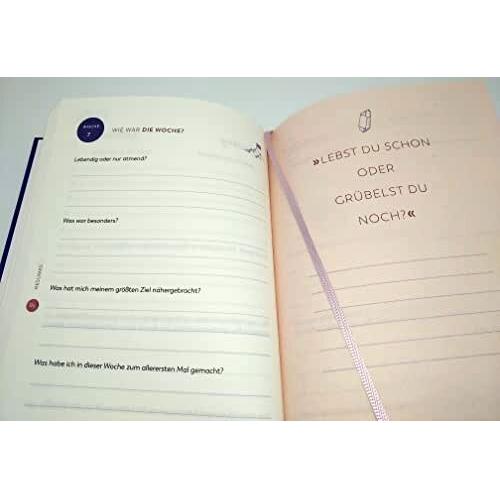 WOCHE
7
WIE WAR DIE WOCHE?
Lebendig oder nur atmend?
Was war besonders?
Was hat mich meinem größten Ziel nähergebracht?
Was habe ich in dieser Woche zum allerersten Mal gemacht?
RESÜMEE
»LEBST DU SCHON
ODER
GRÜBELST DU
NOCH?«